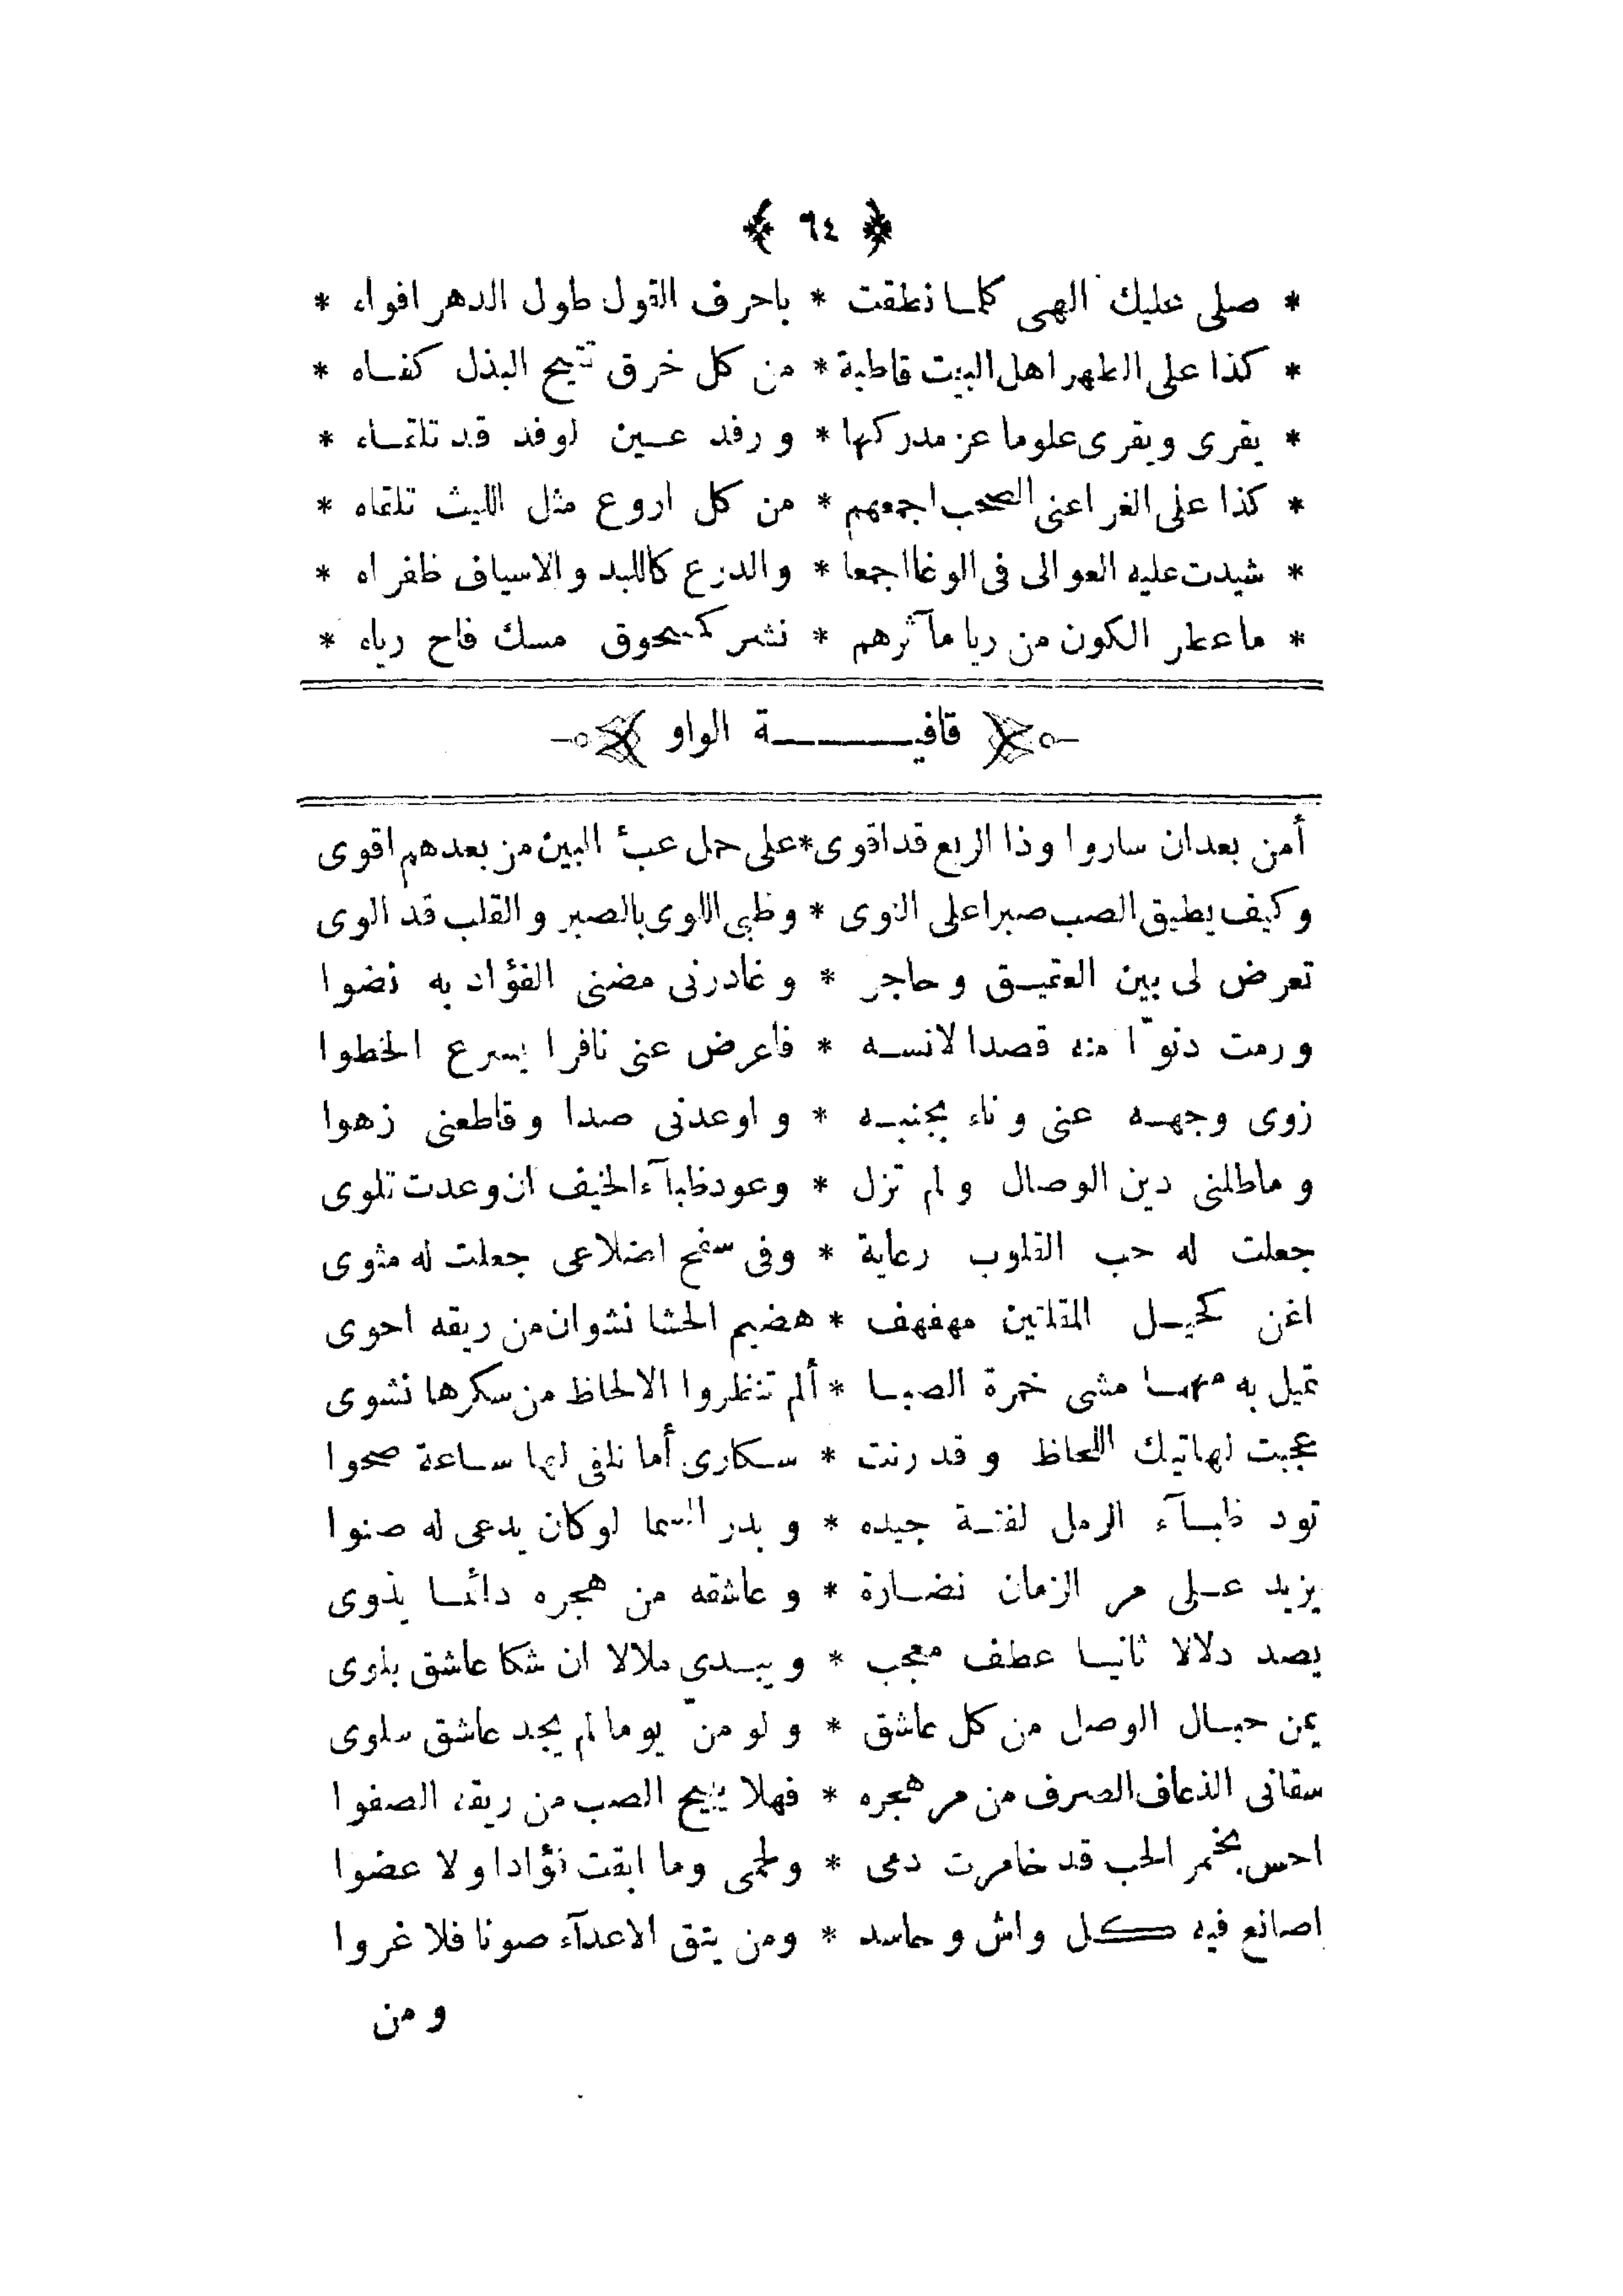 ﴿ ٦٤ ﴾
* صلى عليك الهى كلما نطقت * باحرف القول طول الدهر افواه *
* كذا على الطهر اهل البيت قاطبة * من كل خرق تتيح البذل كفاه *
* يقرى ويقرى علوما عز مدركها * ورفد عين لوفد قد تلقاه *
* كذا على الغر اعنى الصحب اجمعهم * من كل اروع مثل الليث تلقاه *
* شيدت عليه العوالى فى الوغا اجما * والدرع كاللبد والاسياف ظفراه *
* ما عطر الكون من ريا مآثرهم * نشر كمسحوق مسك فاح رياه *
قافيــة الواو
أمن بعد ان ساروا وذا الربع قد اقوى * على حمل عبأ البين من بعدهم اقوى
وكيف يطيق الصب صبرا على النوى * وظبى اللوى بالصبر والقلب قد الوى
تعرض لى بين العقيق وحاجر * وغادرنى مضنى الفؤاد به نضوا
ورمت دنوّا منه قصدا لانسه * فاعرض عنى نافرا يسرع الخطوا
زوى وجهه عنى وناء بجنبه * واوعدنى صدا وقاطعنى زهوا
وماطلنى دين الوصال ولم تزل * وعود ظبآء الخيف ان وعدت تلوى
جعلت له حب القلوب رعاية * وفى سفح اضلاعى جعلت له مثوى
اغن كحيل المقلتين مهفهف * هضيم الحشا نشوان من ريقه احوى
تميل به مهما مشى خمرة الصبا * ألم تنظروا الالحاظ من سكرها نشوى
عجبت لهاتيك اللحاظ وقد رنت * سكارى أما نلفى لها ساعة صحوا
تود ظبآء الرمل لفتة جيده * وبدر السما لو كان يدعى له صنوا
يزيد على مر الزمان نضارة * وعاشقه من هجره دائما يذوى
يصد دلالا ثانيا عطف معجب * ويبدى ملالا ان شكا عاشق بلوى
يمن حبال الوصل من كل عاشق * ولو منّ يوما لم يجد عاشق سلوى
سقانى الذعاف الصرف من مر هجره * فهلا يبيح الصب من ريقه الصفوا
احس بخمر الحب قد خامرت دمى * ولحمى وما ابقت فؤادا ولا عضوا
اصانع فيه كل واش وحاسد * ومن يتق الاعدآء صونا فلا غروا
ومن